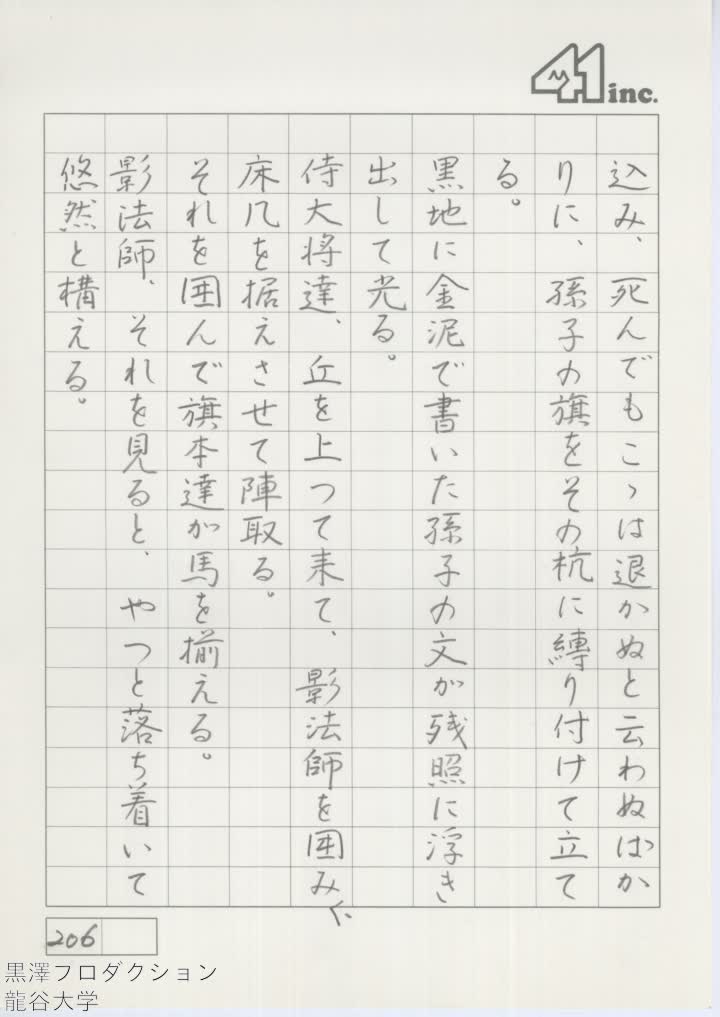 41 inc.
込み、死んでもこゝは退かぬと云わぬばか
りに、孫子の旗をその杭に縛り付けて立て
る。
黒地に金泥で書いた孫子の文が残照に浮き
出して光る。
侍大将達、丘を上つて来て、影法師を囲み、
床几を据えさせて陣取る。
それを囲んで旗本達が馬を揃える。
影法師、それを見ると、やつと落ち着いて
悠然と構える。
206
黒澤フロダクション
龍谷大学